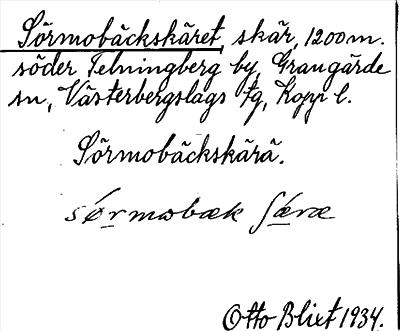 Sörmobäckskäret, skär, 1200 m.
söder Telningberg by, Grangärde
sn, Västerbergslags tg, Kopp l.
Sörmobäckskärä.
sørmobæk ʃæræ
Otto Blixt 1934.